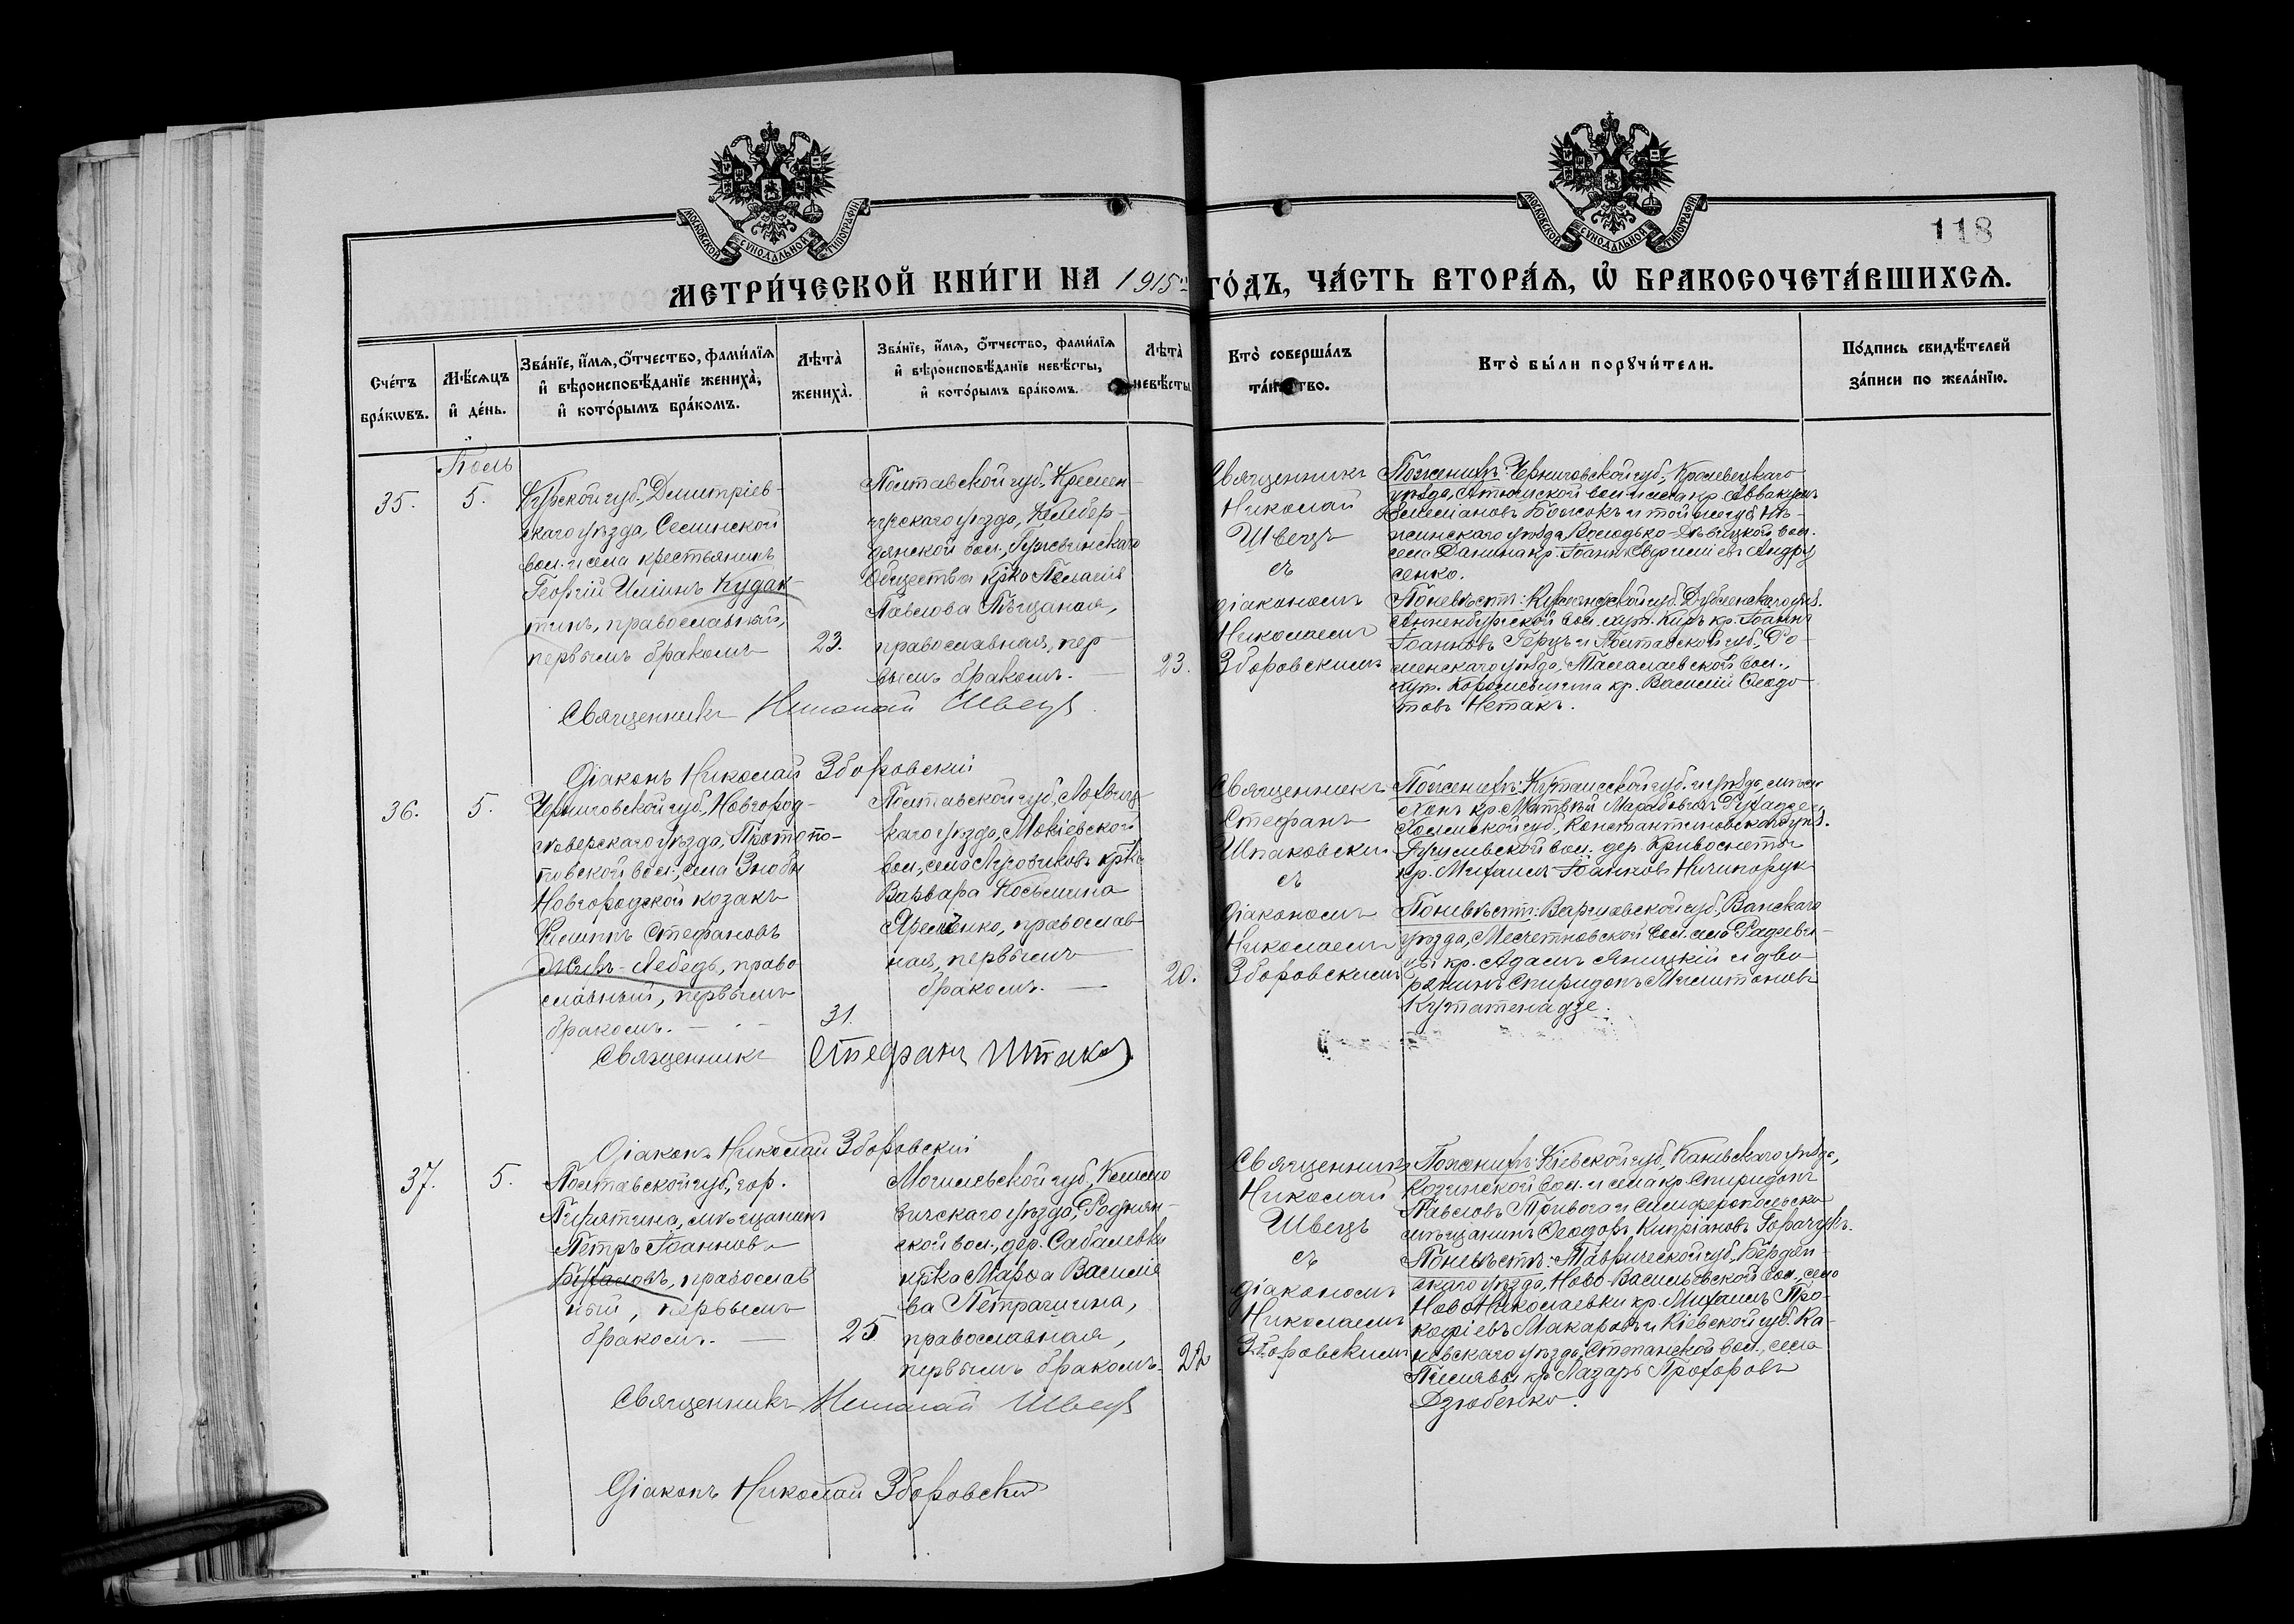 МОСКОВСКОЙ СУНОДАЛЬНОЙ ТИПОГРАФІИ
МОСКОВСКОЙ СУНОДАЛЬНОЙ ТИПОГРАФІИ
118
МЕТРИ́ЧЕСКОЙ КНИ́ГИ НА 1915й ГО́ДЪ, ЧА́СТЬ ВТОРА́Ѧ, Ѡ҆ БРАКОСОЧЕТА́ВШИХСѦ.
Сче́тъ бра́кѡвъ.
Мѣ́сѧцъ и҆ де́нь.
Зва́нїе, и҆́мѧ, ѻ҆́тчество, фами́лїѧ
и҆ вѣроисповѣ́данїе жениха̀,
и҆ кото́рымъ бра́комъ.
Лѣта̀ жениха̀.
Зва́нїе, и҆́мѧ, ѻ҆́тчество, фами́лїѧ
и҆ вѣроисповѣ́данїе невѣ́сты,
и҆ кото́рымъ бра́комъ.
Лѣта̀ невѣ́сты
Кто̀ соверша́лъ
та́инство.
Кто̀ бы́ли порꙋчи́тели.
По́дпись свидѣ́телей
за́писи по жела́нїю.
Іюль
35.
5.
Курской губ., Дмитріев-
скаго уѣзда, Селинской
вол. и села крестьянинъ
Георгій Илiинъ Кудак-
тинъ, православный,
первымъ бракомъ
23.
Полтавской губ., Кремен-
чугскаго уѣзда, Келебер-
дянской вол.,
общества кр-ка Пелагія
Павлова Пѣщаная,
православная, пер-
вымъ бракомъ. —
23.
Священникъ
Николай
Швецъ
съ
діакономъ
Николаемъ
Зборовскимъ
По женихѣ: Черниговской губ., Кролевецкаго
уѣзда, Атюшской вол. и села кр. Аввакумъ
Емеліановъ и той же губ. Нѣ-
жинскаго уѣзда Володько-Дѣвицкой вол.
села Данина кр. Іоаннъ Евфиміевъ Андру
сенко.
По невѣстѣ: Курляндской губ. уѣз.
вол. хут. кр. Іоаннъ
Іоанновъ и Полтавской губ., Ро-
менскаго уѣзда, Талалаевской вол.,
хут. кр. Василій Ѳеодо
товъ Нетакъ.
Священникъ Николай Швецъ
Діаконъ Николай Зборовскій
36.
5.
Черниговской губ., Новгород-
сѣверскаго уѣзда, Протопо-
повской вол., села Знобы
Новгородской козакъ
Филиппъ Стефановъ
Лебедь, право
славный, первымъ
бракомъ. — . —
31.
Полтавской губ., Лохвиц-
каго уѣзда, Мокіевской
вол., села Луговиковъ кр-ка
Варвара Косьмина
Яременко, православ-
ная, первымъ
бракомъ. —
20.
Священникъ
Стефанъ
Шпаковскій
съ
діакономъ
Николаемъ
Зборовскимъ
По женихѣ: Кутаисской губ. и уѣзда,
кр. Матвѣй
Холмской губ., Константиновскаго уѣз.
вол. дер.
кр. Михаилъ Іоанновъ Ничипорукъ
По невѣстѣ: Варшавской губ.,
уѣзда, вол. село
кр. Адамъ Яницкій и дво-
рянинъ Спиридонъ
Кутателадзе.
Священникъ Стефанъ Шпаков
Діаконъ Николай Зборовскій
37.
5.
Полтавской губ., гор.
Пирятина, мѣщанинъ
Петръ Іоанновъ
православ
ный, первымъ
бракомъ. —
25
Могилевской губ., Климо
вичскаго уѣзда, Роднян-
ской вол., дер. Сабалевки
кр-ка Марѳа Василіе
ва Петрачина,
православная,
первымъ бракомъ.
22
Священникъ
Николай
Швецъ
съ
діакономъ
Николаемъ
Зборовскимъ
По женихѣ: Кіевской губ., Каневскаго уѣзда,
Козинской вол. и села кр. Спиридонъ
Павловъ и Симферопольск.
мѣщанинъ Ѳеодоръ Кипріановъ Горачукъ.
По невѣстѣ: Таврической губ., Бердян-
скаго уѣзда, Ново-Васильевской вол., село
Ново Николаевки кр. Михаилъ Про-
кофіевъ Макаровъ и Кіевской губ. Ка-
невскаго уѣзда, Степанской вол., села
кр. Лазарь Прохоровъ
Дзюбенко.
Священникъ Николай Швецъ
Діаконъ Николай Зборовскій